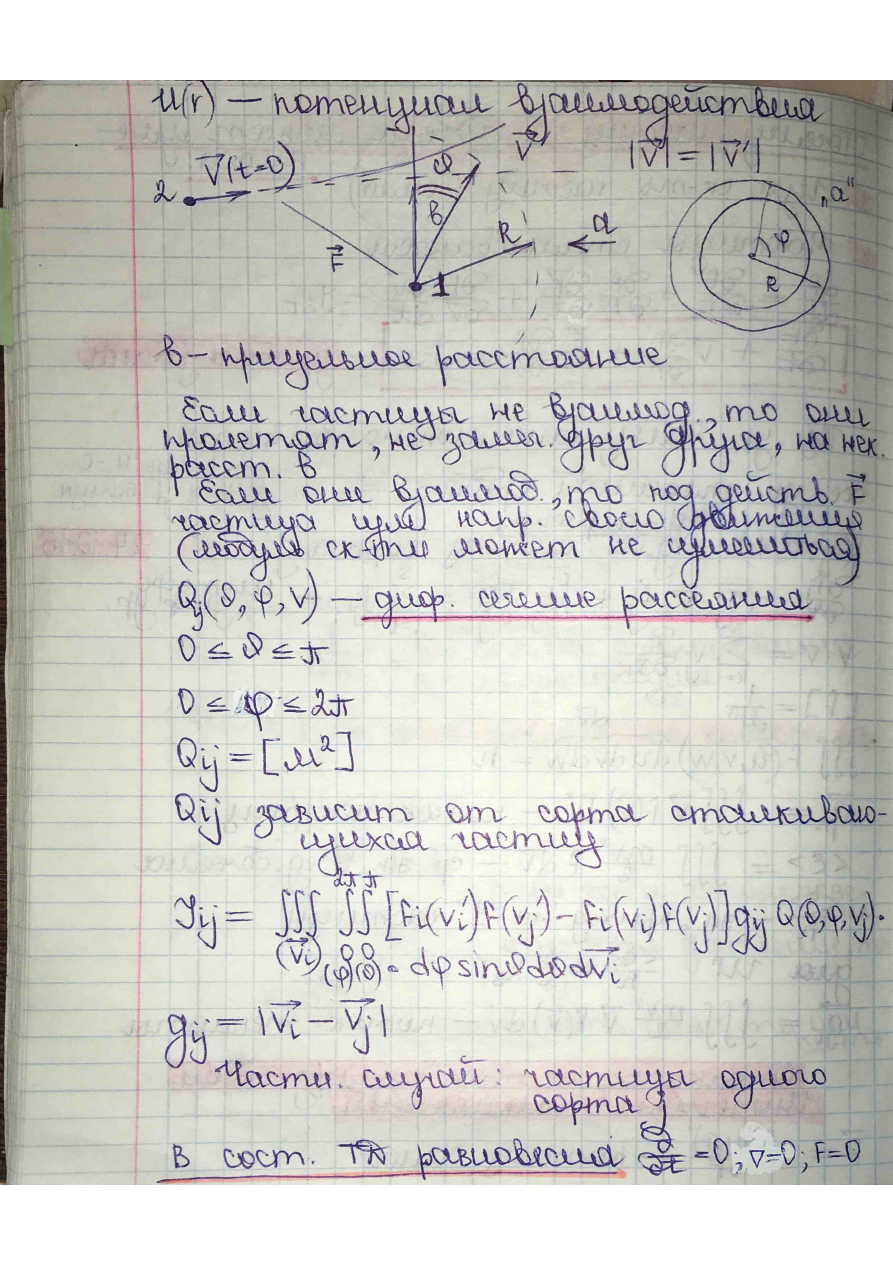 U(r) — потенциал взаимодействия
2 V⃗(t=0) ϑ V⃗' |V⃗| = |V⃗'|
в R' a „a“ φ R
F⃗ 1
в – прицельное расстояние
Если частицы не взаимод., то они
пролетят, не замеч. друг друга, на нек.
расст. в
Если они взаимод., то под действ. F⃗
частица изм. напр. своего движения
(модуль ск-ти может не измениться)
Qij(ϑ, φ, V) — диф. сечение рассеяния
0 ≤ ϑ ≤ π
0 ≤ φ ≤ 2π
Qij = [м²]
Qij зависит от сорта сталкиваю-
щихся частиц
2π π
Jij = ∭ ∬ [Fi(Vi')F(Vj') – Fi(Vi)F(Vj)]gij Q(ϑ,φ,Vj)·
(V⃗i) (φ)0 (ϑ)0 · dφ sinϑdϑdV⃗i
gij = |V⃗i – V⃗j|
Частн. случай: частицы одного
сорта j
В сост. ТД равновесия ∂/∂t = 0; ∇=0; F=0